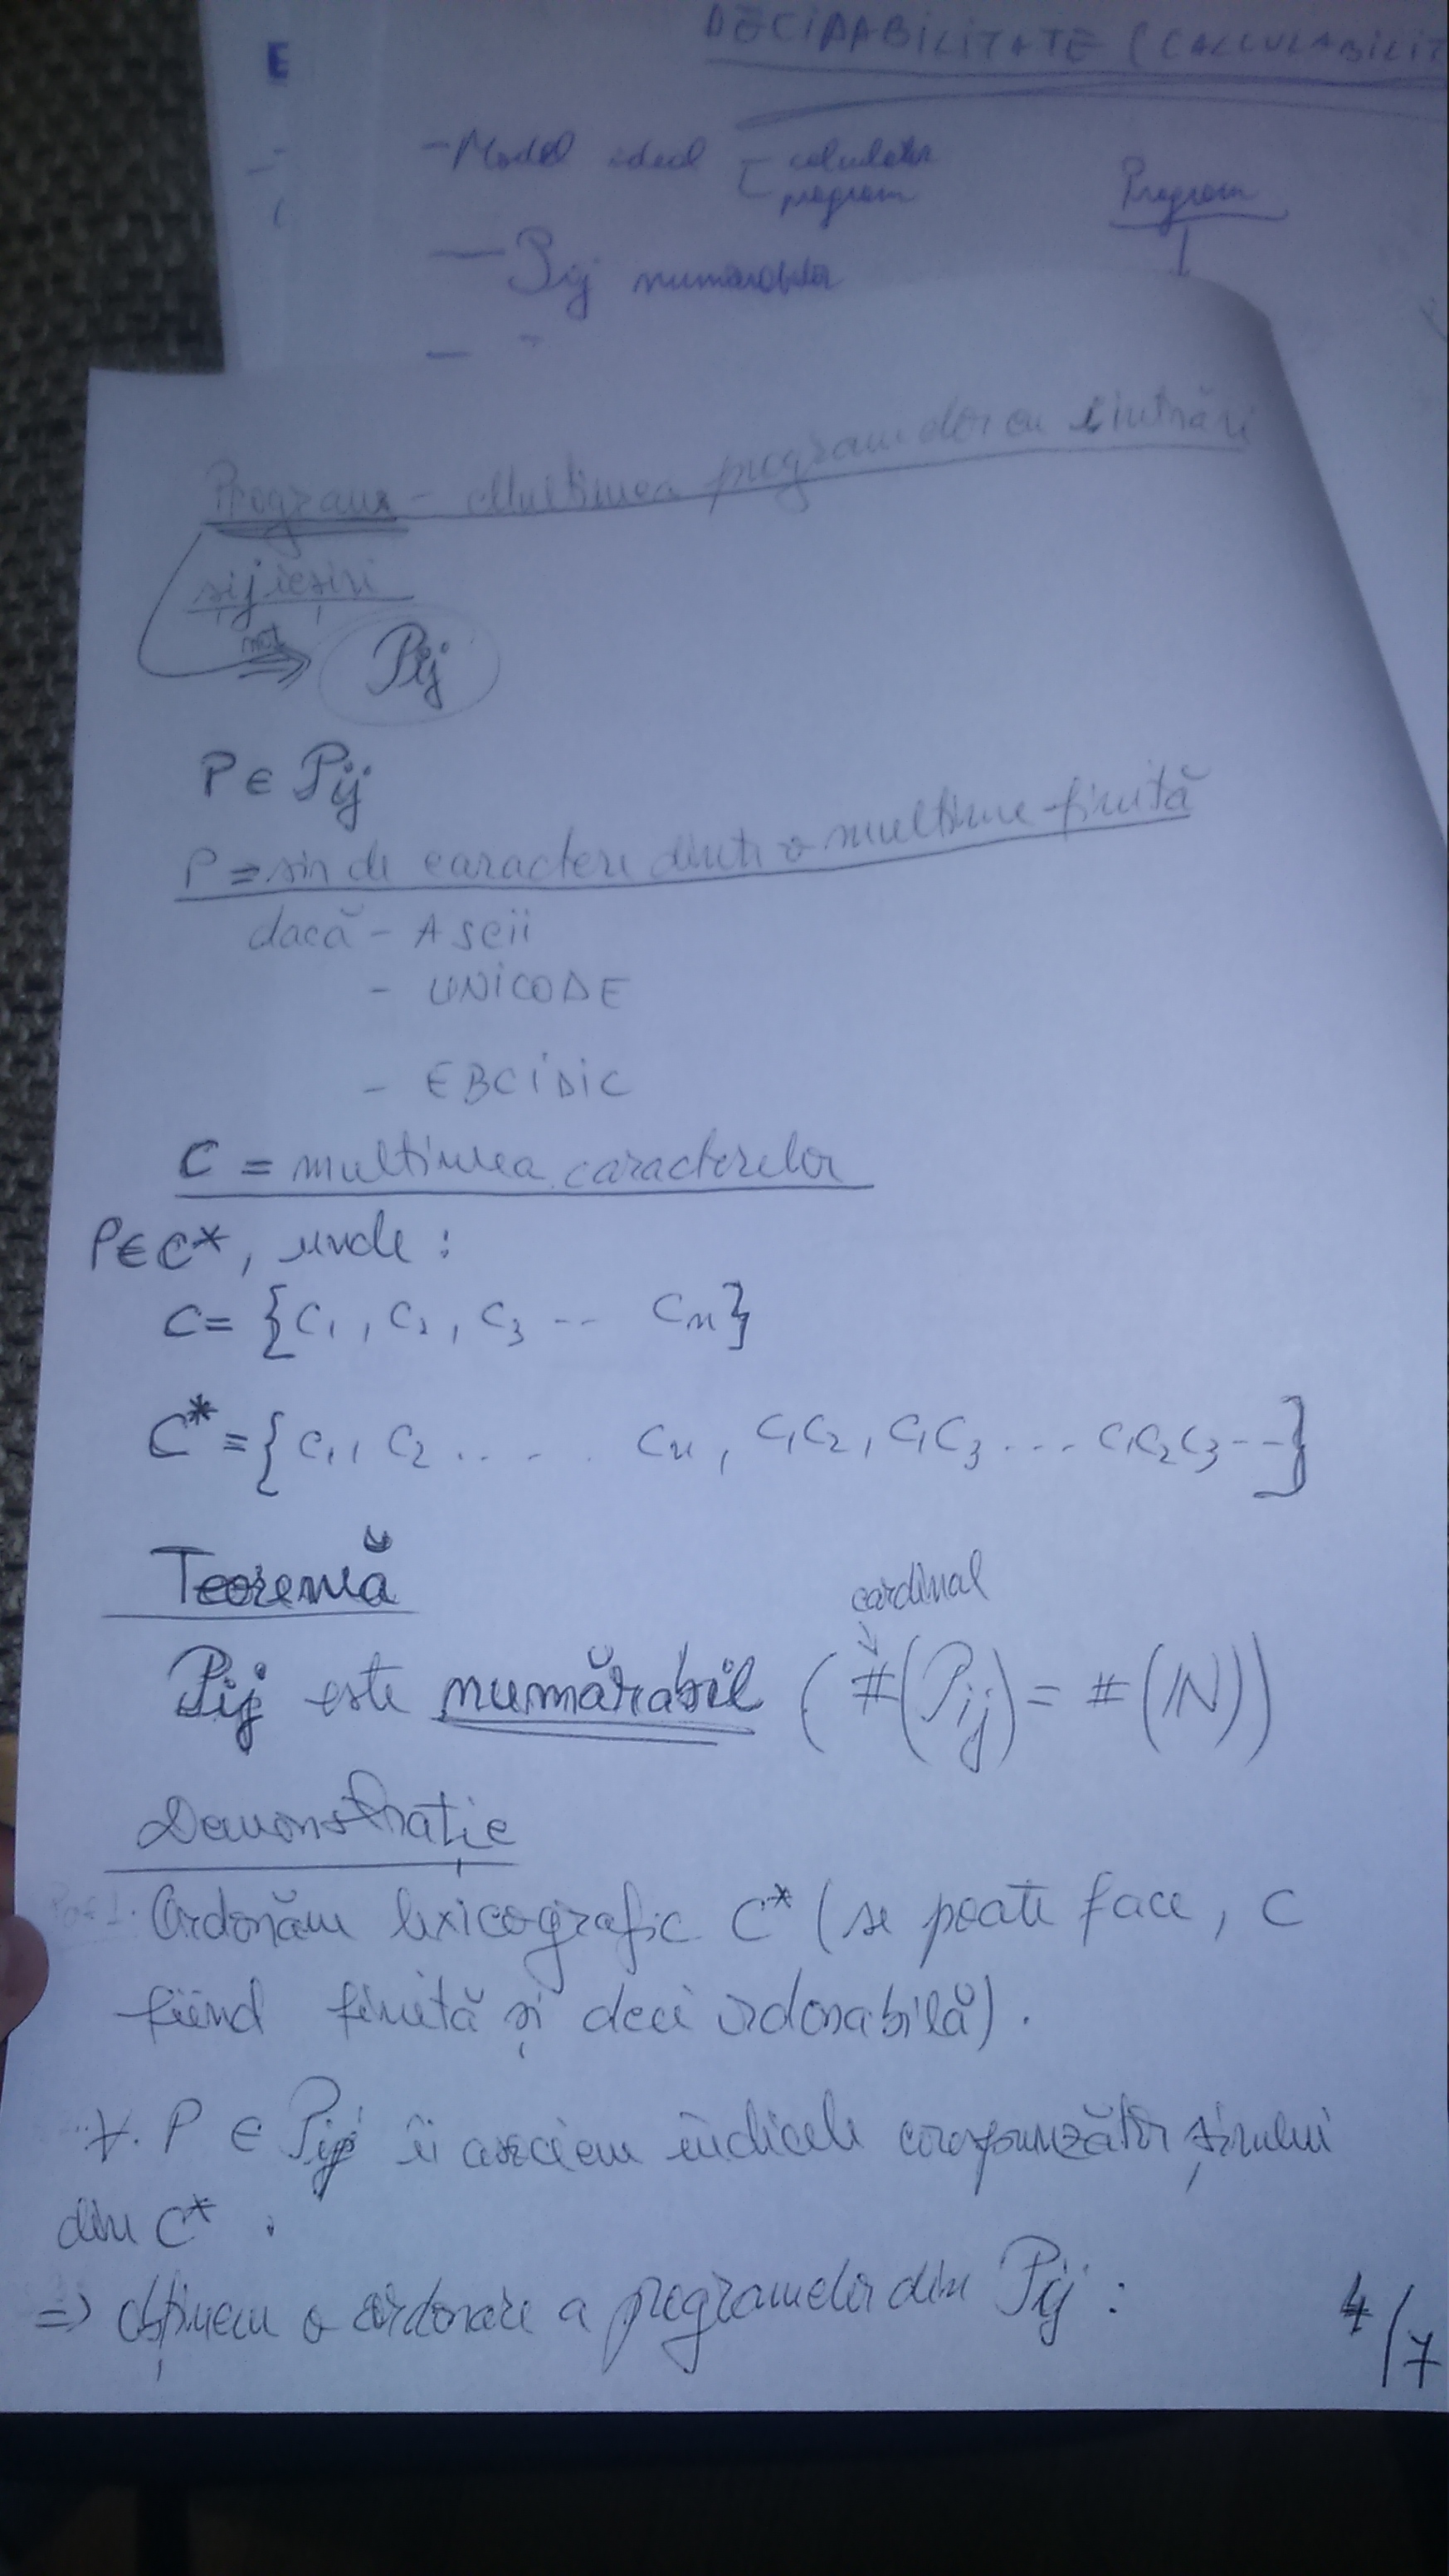 DECIDABILITATE (CALCULABILIT
- Model ideal calculator
program
Program
- Pij numărabila
Program - mulțimea programelor cu intrări
și ieșiri
not
Pij
P ∈ Pij
P = șir de caractere dintr-o mulțime finită
dacă - ASCII
- UNICODE
- EBCIDIC
C = mulțimea caracterelor
P ∈ C*, unde :
C = {C1, C2, C3 -- Cn}
C* = {C1, C2 ... Cn, C1C2, C1C3 ... C1C2C3 ---}
Teoremă
cardinal
Pij este numărabil (#(Pij) = #(IN))
Demonstrație
Ordonăm lexicografic C* (se poate face, C
fiind finită și deci ordonabilă).
∀ P ∈ Pij îi asociem indicele corespunzător șirului
din C* .
⇒ obținem o ordonare a programelor din Pij :
4/7